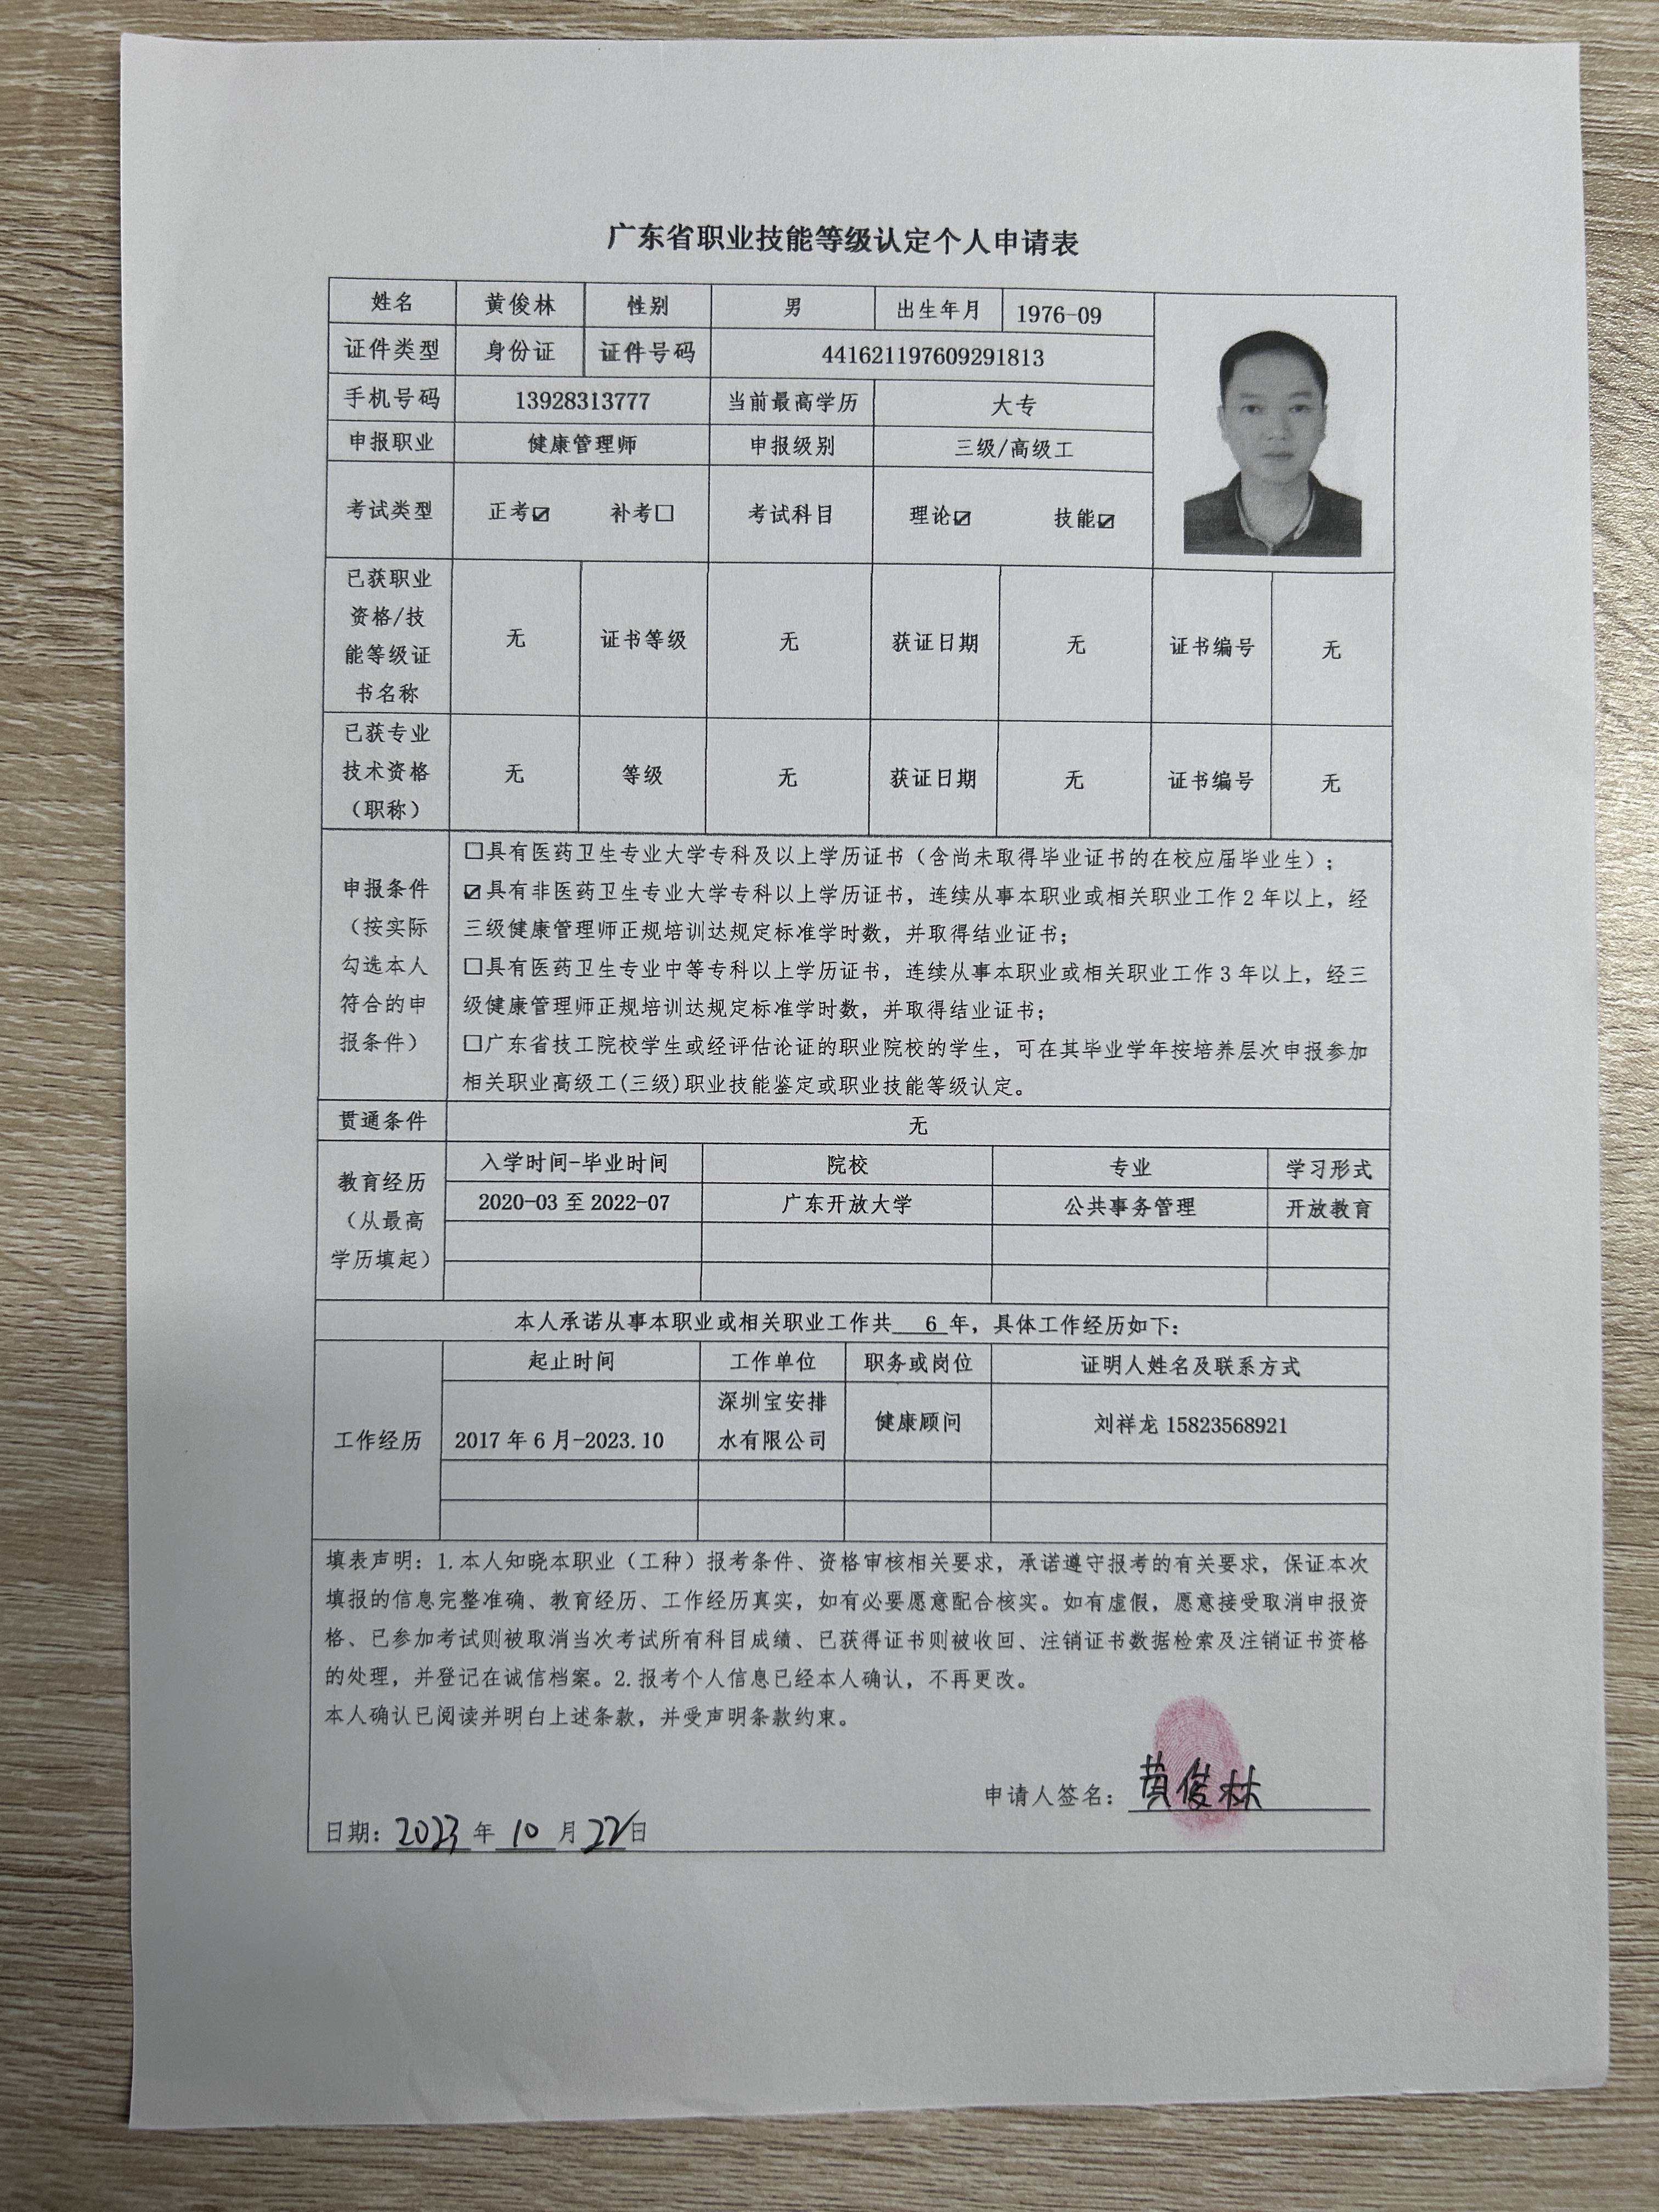 广东省职业技能等级认定个人申请表
姓名 黄俊林 性别 男 出生年月 1976-09
证件类型 身份证 证件号码 441621197609291813
手机号码 13928313777 当前最高学历 大专
申报职业 健康管理师 申报级别 三级/高级工
考试类型 正考☑ 补考☐ 考试科目 理论☑ 技能☑
已获职业
资格/技
能等级证
书名称
无 证书等级 无 获证日期 无 证书编号 无
已获专业
技术资格
（职称）
无 等级 无 获证日期 无 证书编号 无
申报条件
（按实际
勾选本人
符合的申
报条件）
☐具有医药卫生专业大学专科及以上学历证书（含尚未取得毕业证书的在校应届毕业生）；
☑具有非医药卫生专业大学专科以上学历证书，连续从事本职业或相关职业工作2年以上，经
三级健康管理师正规培训达规定标准学时数，并取得结业证书；
☐具有医药卫生专业中等专科以上学历证书，连续从事本职业或相关职业工作3年以上，经三
级健康管理师正规培训达规定标准学时数，并取得结业证书；
☐广东省技工院校学生或经评估论证的职业院校的学生，可在其毕业学年按培养层次申报参加
相关职业高级工(三级)职业技能鉴定或职业技能等级认定。
贯通条件 无
教育经历
（从最高
学历填起）
入学时间-毕业时间 院校 专业 学习形式
2020-03 至 2022-07 广东开放大学 公共事务管理 开放教育
本人承诺从事本职业或相关职业工作共 6 年，具体工作经历如下：
工作经历
起止时间 工作单位 职务或岗位 证明人姓名及联系方式
2017 年 6 月-2023.10
深圳宝安排
水有限公司
健康顾问 刘祥龙 15823568921
填表声明：1.本人知晓本职业（工种）报考条件、资格审核相关要求，承诺遵守报考的有关要求，保证本次
填报的信息完整准确、教育经历、工作经历真实，如有必要愿意配合核实。如有虚假，愿意接受取消申报资
格、已参加考试则被取消当次考试所有科目成绩、已获得证书则被收回、注销证书数据检索及注销证书资格
的处理，并登记在诚信档案。2.报考个人信息已经本人确认，不再更改。
本人确认已阅读并明白上述条款，并受声明条款约束。
申请人签名：黄俊林
日期：2023 年 10 月 22 日